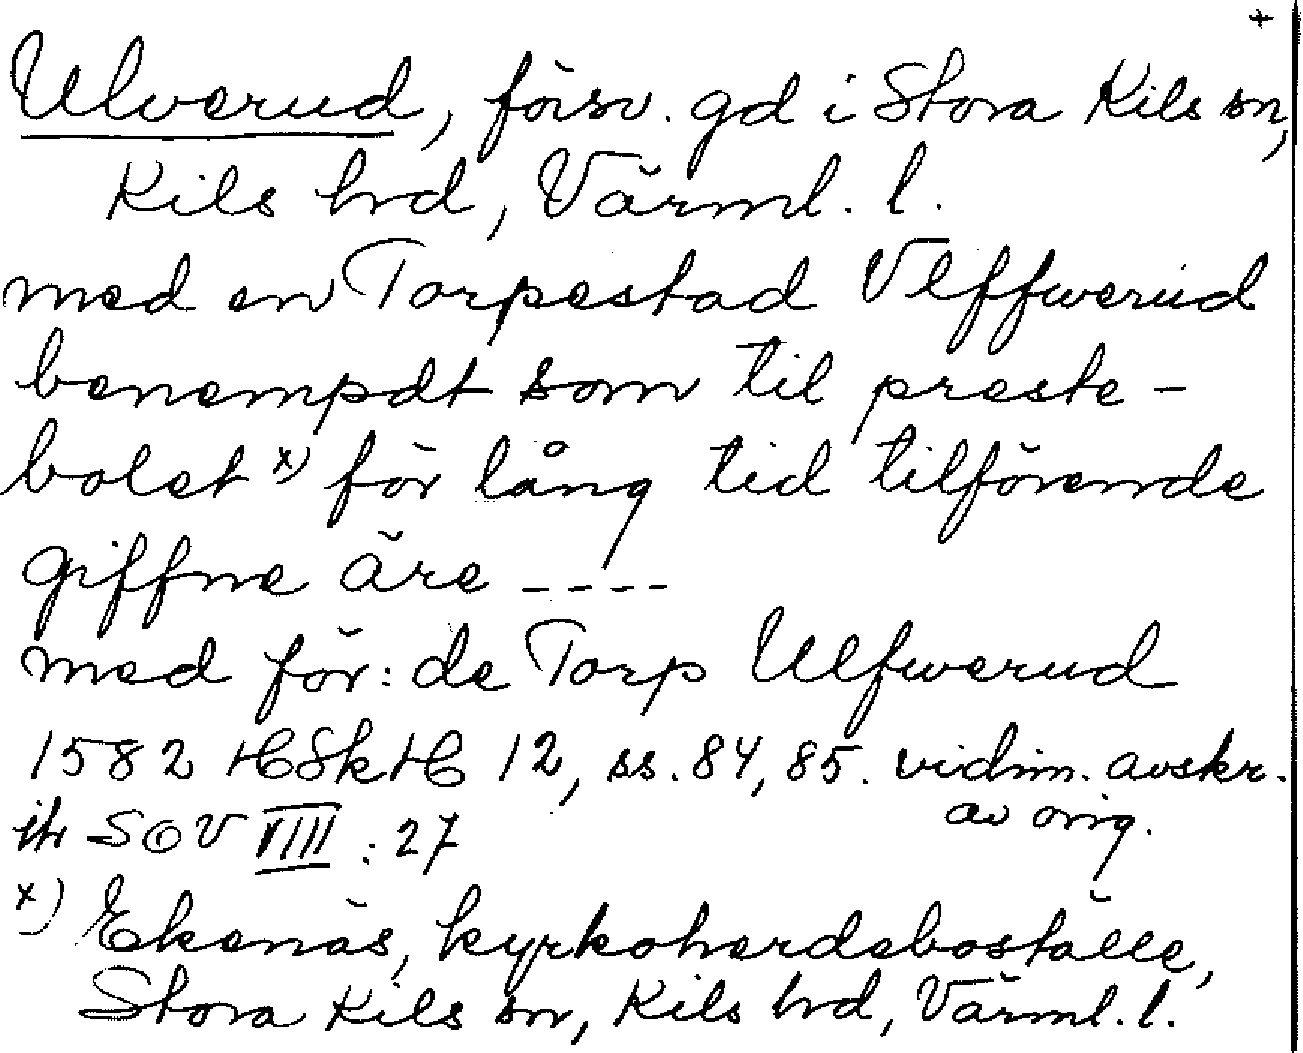 +
Ulverud, försv. gd i Stora Kils sn,
Kils hrd, Värml. l.
med en Torpestad Vlffwerud
benempdt som til preste-
bolet x) för lång tid tilförende
giffne äre ----
med för:de Torp Ulfwerud
1582 HSkH 12, ss. 84, 85. vidim. avskr.
av orig.
jfr SOV VIII : 27
x) Ekenäs, kyrkoherdeboställe,
Stora Kils sn, Kils hrd, Värml. l.